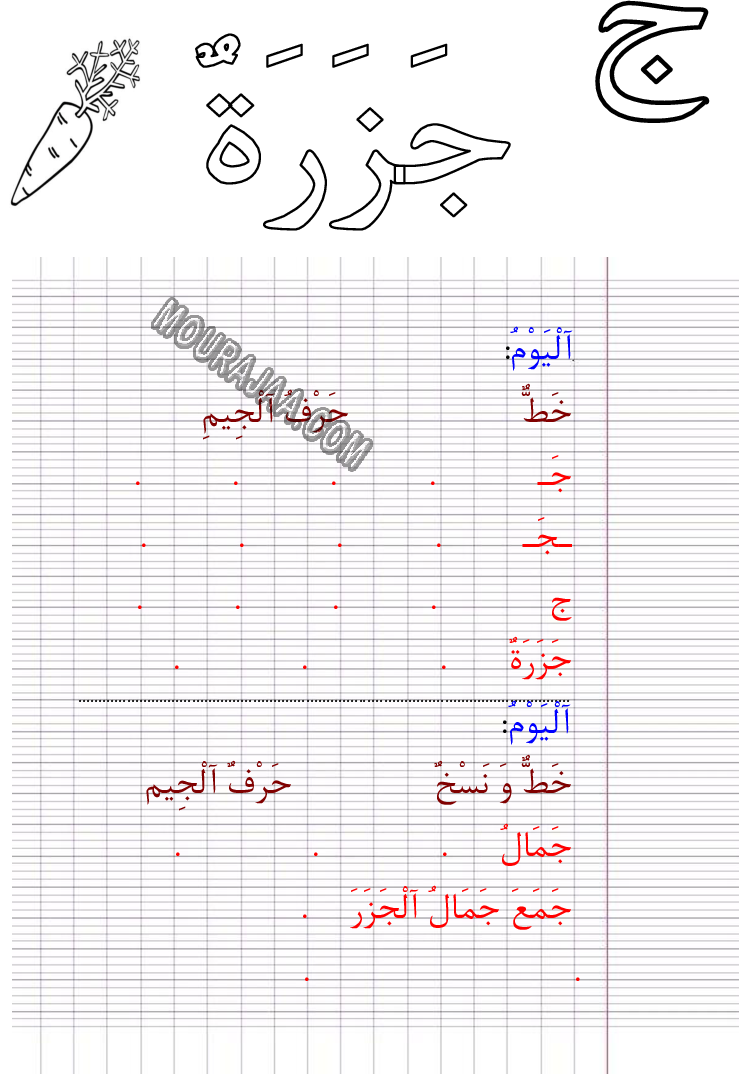 ج
جَزَرَةٌ
MOURAJAA.COM
اَلْيَوْمُ:
خَطٌّ حَرْفُ اَلْجِيمِ
جَـ . . . .
ـجَـ . . . .
ج . . . .
جَزَرَةٌ . . .
اَلْيَوْمُ:
خَطٌّ وَ نَسْخٌ حَرْفُ اَلْجِيم
جَمَالُ . . .
جَمَعَ جَمَالُ اَلْجَزَرَ .
. .